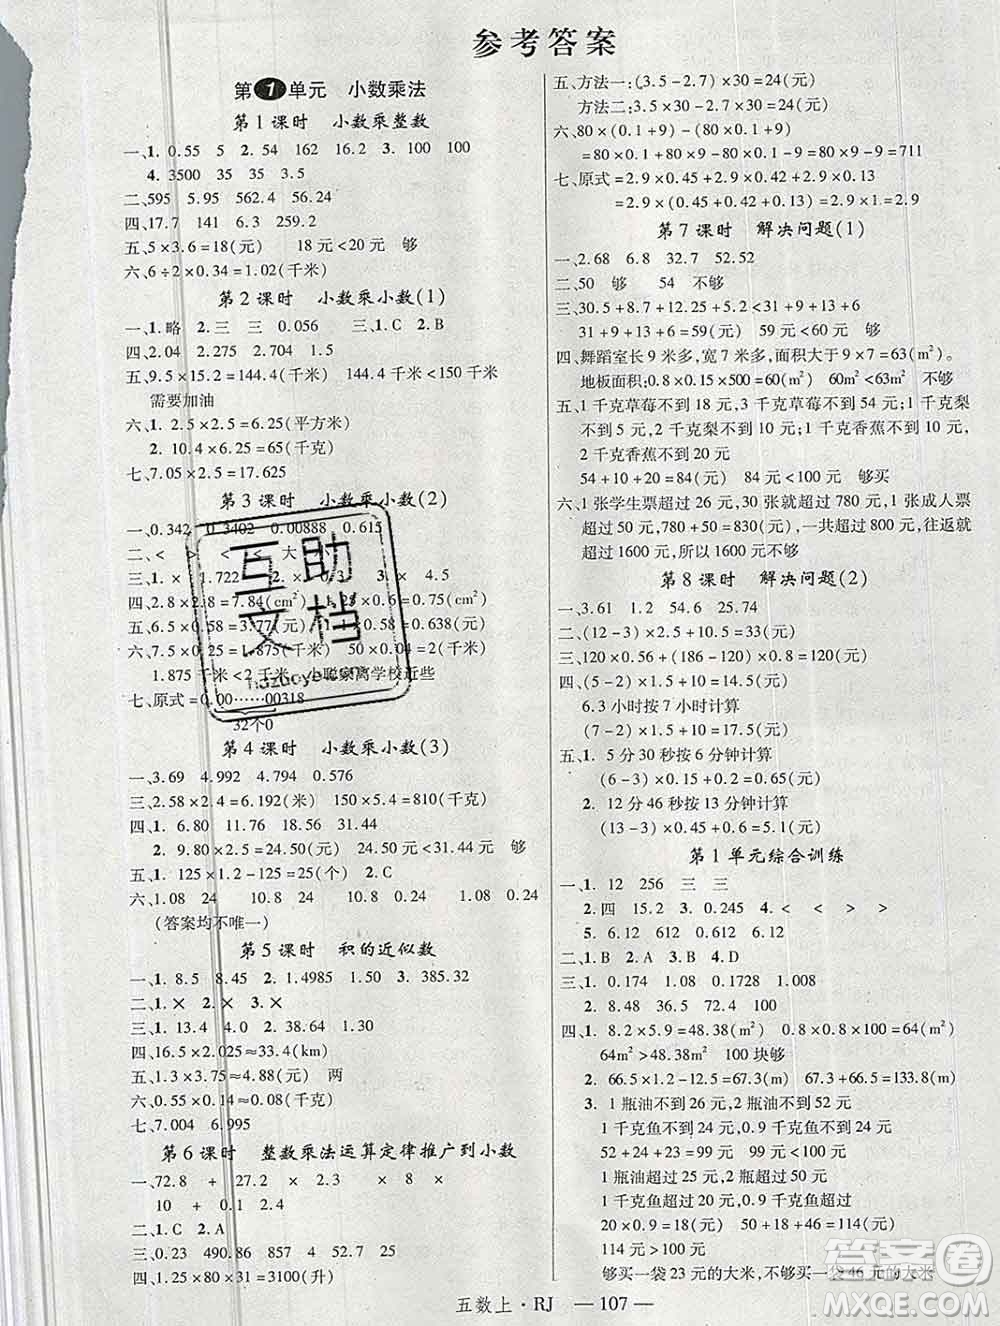 参考答案
第1单元 小数乘法
第1课时 小数乘整数
一、1. 0.55 5 2. 54 162 16.2 3. 100 100
4. 3500 35 35 3.5
二、595 5.95 562.4 56.24
四、17.7 141 6.3 259.2
五、5×3.6=18(元) 18元<20元 够
六、6÷2×0.34=1.02(千米)
第2课时 小数乘小数(1)
一、1. 略 2. 三 三 0.056 三、1. C 2. B
四、2.04 2.275 2.704 1.5
五、9.5×15.2=144.4(千米) 144.4千米<150千米
需要加油
六、1. 2.5×2.5=6.25(平方米)
2. 10.4×6.25=65(千克)
七、7.05×2.5=17.625
第3课时 小数乘小数(2)
一、0.342 0.3402 0.00888 0.615
二、< > < < 大
三、1. × 1.722 3. × 4.5
四、2.8×2.8=7.84(cm²) 1.8×3.7=6.66(cm²)
五、6.5×0.58=3.77(元) 1.1×0.58=0.638(元)
六、7.5×0.25=1.875(千米) 50×0.04=2(千米)
1.875千米<2千米 小聪家离学校近些
七、原式=0.00……00318
32个0
第4课时 小数乘小数(3)
一、3.69 4.992 4.794 0.576
三、2.58×2.4=6.192(米) 150×5.4=810(千克)
四、1. 6.80 11.76 18.56 31.44
2. 9.80×2.5=24.50(元) 24.50元<31.44元 够
五、1. 125×1.2-125=25(个) 2. C
六、1.08 24 10.8 24 10.8 2.4 1.08 0.24
(答案均不唯一)
第5课时 积的近似数
一、1. 8.5 8.45 2. 1.4985 1.50 3. 385.32
二、1. × 2. × 3. ×
三、1. 13.4 4.0 2. 38.64 1.30
四、16.5×2.025≈33.4(km)
五、1.3×3.75≈4.88(元) 两
六、0.55×0.14≈0.08(千克)
七、7.004 6.995
第6课时 整数乘法运算定律推广到小数
一、72.8 + 27.2 × × × 8 ×
10 + 0.1 2.4
二、1. C 2. A
三、0.23 490.86 257 303
四、1.25×80×31=3100(升)
五、方法一:(3.5-2.7)×30=24(元)
方法二:3.5×30-2.7×30=24(元)
六、80×(0.1+9)-(0.1+9)+9
=80×0.1+80×9-0.1-9+9=711
七、原式=2.9×0.45+2.9×0.42+2.9×0.13
=2.9×(0.45+0.42+0.13)=2.9
第7课时 解决问题(1)
一、2.68 6.8 32.7 52.52
二、50 够 54 不够
三、30.5+8.7+12.5+5.2<31+9+13+6
31+9+13+6=59(元) 59元<60元 够
四、舞蹈室长9米多,宽7米多,面积大于9×7=63(m²)。
地板面积:0.8×0.15×500=60(m²) 60m²<63m² 不够
五、1千克草莓不到18元,3千克草莓不到54元;1千克梨
不到5元,2千克梨不到10元;1千克香蕉不到10元,
2千克香蕉不到20元
54+10+20=84(元) 84元<100元 够买
六、1张学生票超过26元,30张就超过780元,1张成人票
超过50元,780+50=830(元),一共超过800元,往返就
超过1600元,所以1600元不够
第8课时 解决问题(2)
一、3.61 1.2 54.6 25.74
二、(12-3)×2.5+10.5=33(元)
三、120×0.56+(186-120)×0.6=106.8(元)
四、(5-2)×1.5+10=14.5(元)
6.3小时按7小时计算
(7-2)×1.5+10=17.5(元)
五、1. 5分30秒按6分钟计算
(6-3)×0.15+0.2=0.65(元)
2. 12分46秒按13分钟计算
(13-3)×0.45+0.6=5.1(元)
第1单元综合训练
一、1. 12 256 三 三
2. 四 15.2 3. 0.245 4. < < > <
5. 6.12 612 0.612 6.12
二、1. B 2. A 3. B 4. D
三、1. 0.174 1.08 0.1728 1.008
2. 8.48 36.5 72.4 100
四、1. 8.2×5.9=48.38(m²) 0.8×0.8×100=64(m²)
64m²>48.38m² 100块够
2. 66.5×1.2-12.5=67.3(m) 67.3+66.5=133.8(m)
3. 1瓶油不到26元,2瓶油不到52元
1千克鱼不到24元,0.9千克鱼不到24元
52+24+23=99(元) 99元<100元
1瓶油超过25元,2瓶油超过50元
1千克鱼超过20元,0.9千克鱼超过
20×0.9=18(元) 50+18+46=114(元)
114元>100元
够买一袋23元的大米,不够买一袋46元的大米
五数上·RJ —107—
互助
文档
答案圈
MXQE.COM